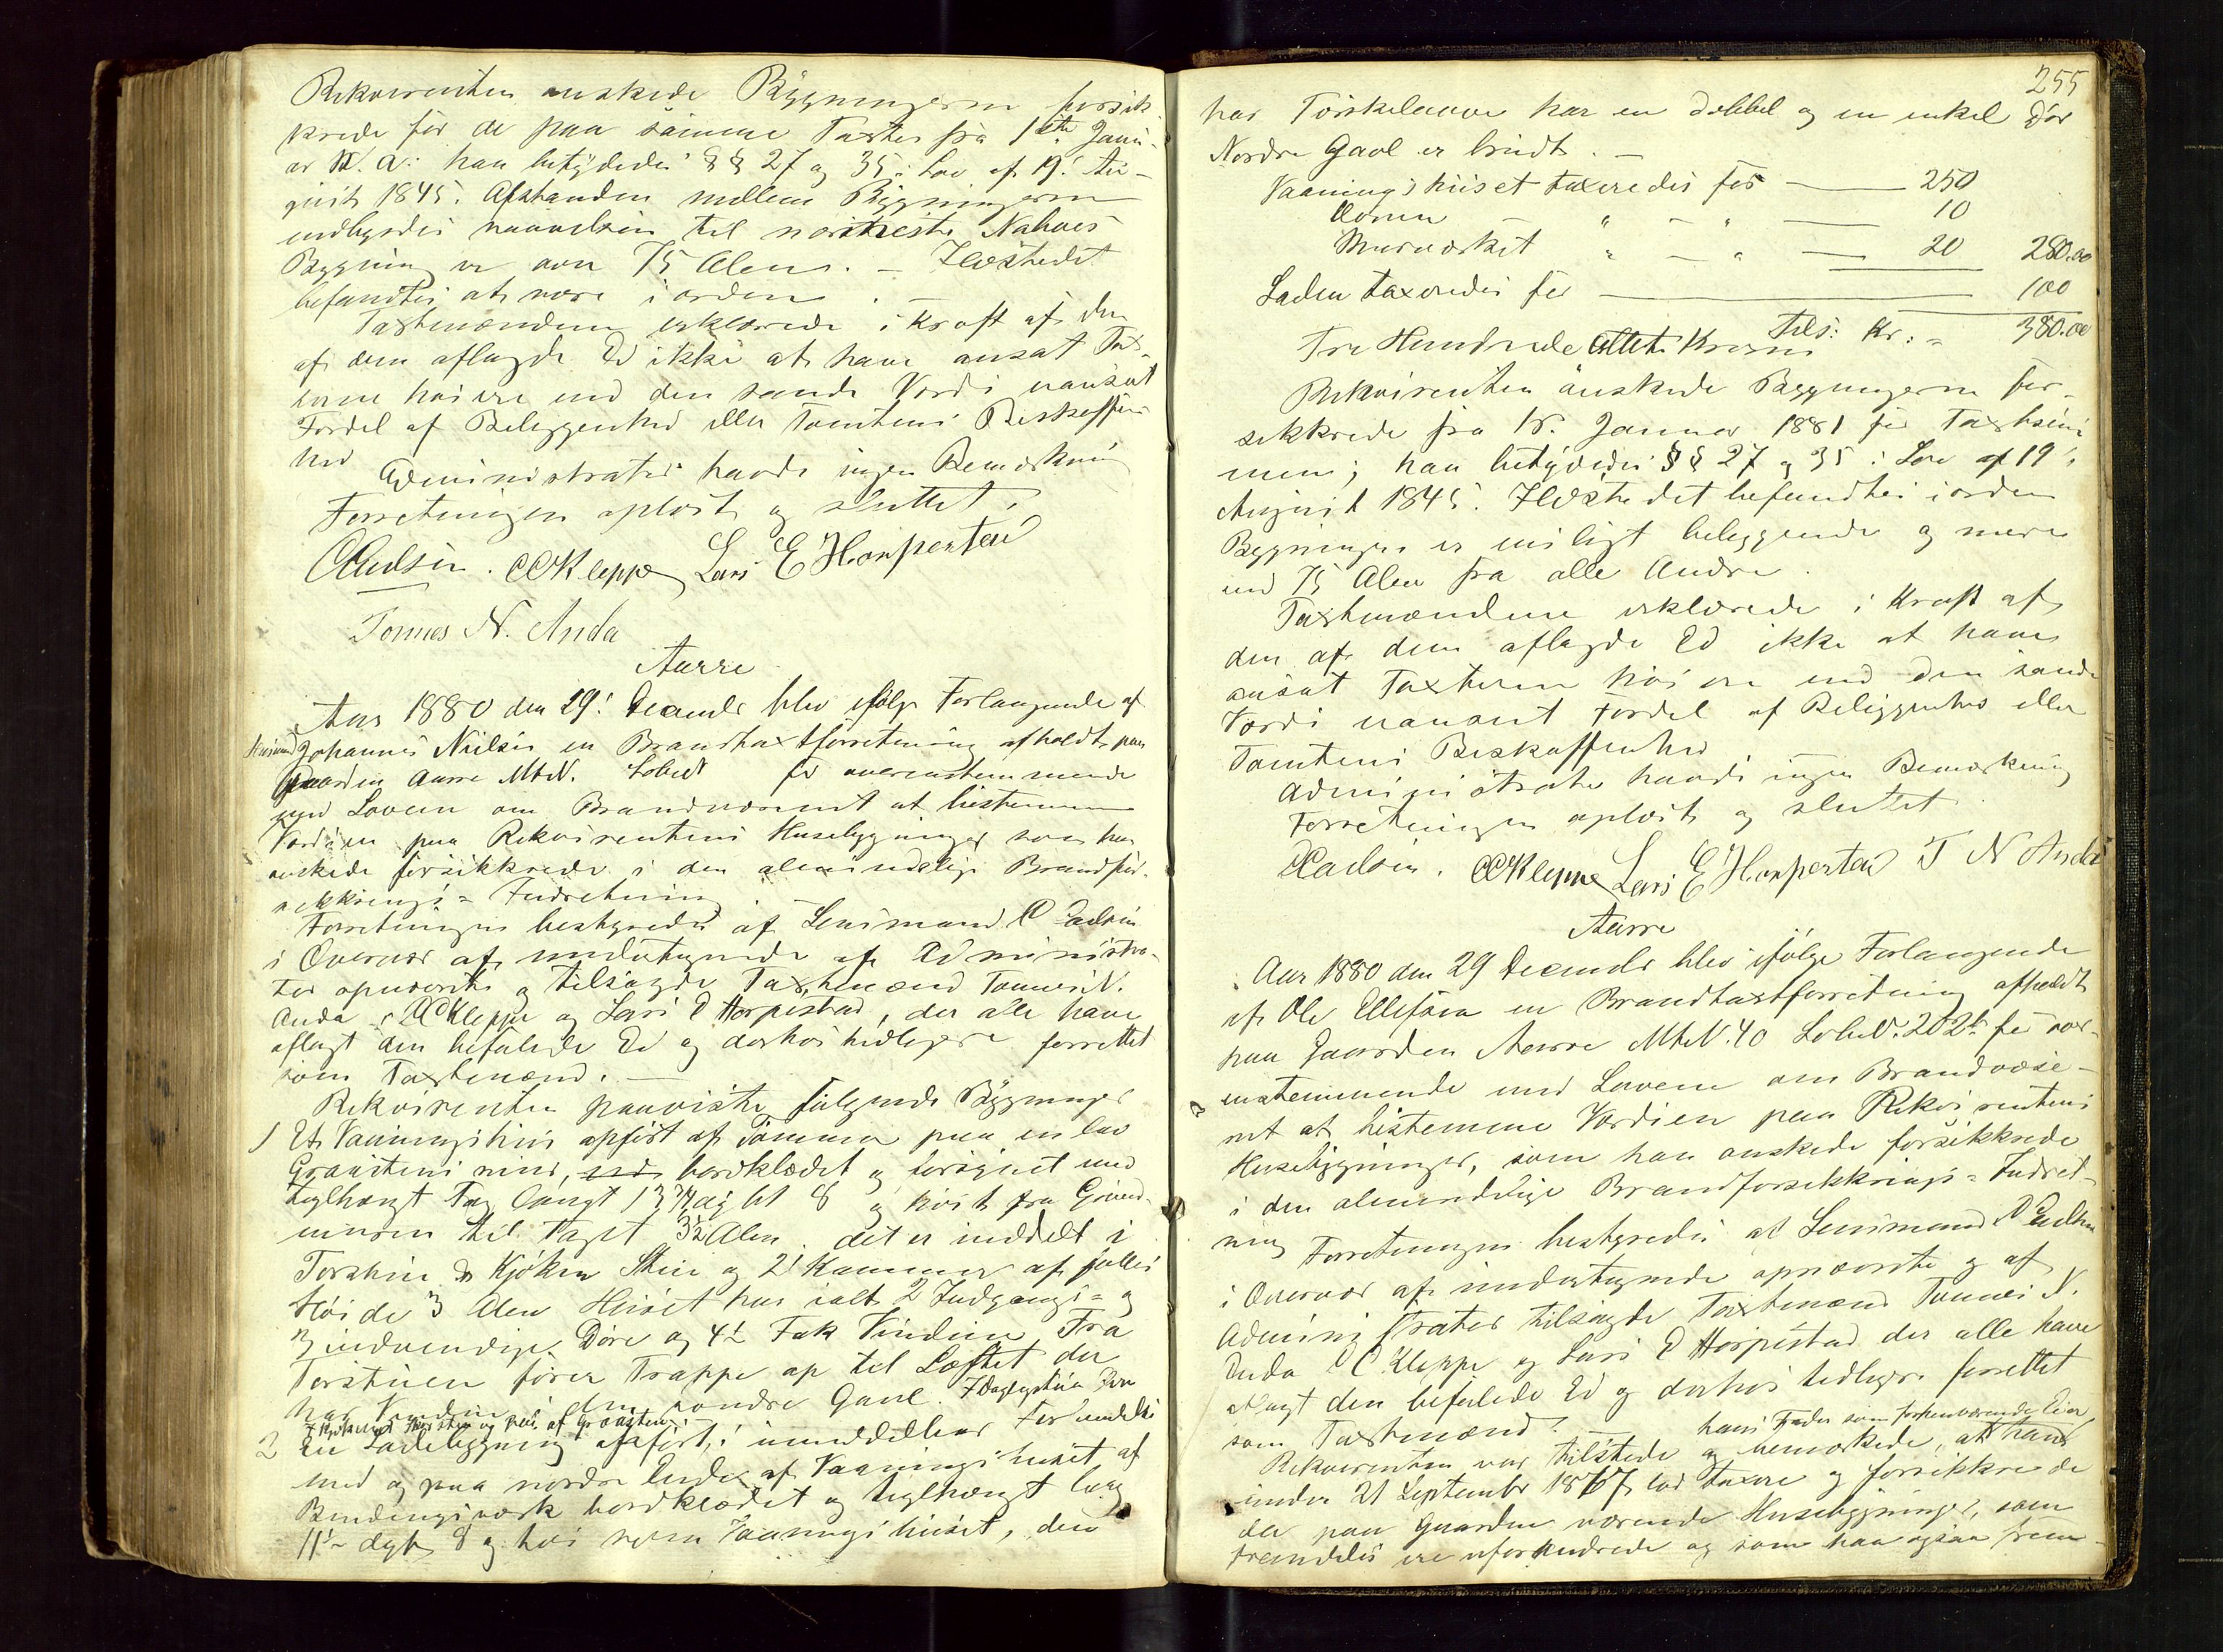 Rekvirenten ønskede Bygningerne forsik-
krede for de paa samme Taxter fra 1ste Janu-
ar n. a: han betydedes §§ 27 og 35 i Lov af 19. Au-
gust 1845. Afstanden mellem Bygningerne
indbyrdes saavelsom til nærmeste Naboes
Bygning er over 75 Alen. — Ildstedet
befandtes at være i orden. —
Taxtmændene erklærede i Kraft af den
af dem aflagde Ed ikke at have ansat Tax-
terne høiere end den sande Værdi uanset
Fordel af Beliggenhed eller Tomtens Beskaffen-
hed
Administrator havde ingen Bemærkning
Forretningen oplæst og sluttet.
CCKleppe Lars E Horpestad
Tønnes N. Anda
Aarre
Aar 1880 den 29. Decembr blev ifølge Forlangende af
Johannes Nielsen en Brandtaxtforretning afholdt paa
Gaarden Aarre MtN. LøbeN for overenstemmende
med Loven om Brandvæsenet at bestemme
Værdien paa Rekvirentens Husebygninger som han
ønskede forsikkrede i den almindelige Brandfor-
sikkrings-Indretning
Forretningen bestyredes af Lensmand
i Overvær af undertegnede af Administra-
tor opnævnte og tilsagde Taxtmænd Tønnes N.
Anda, CC Kleppe og Lars E Horpestad, der alle have
aflagt den befalede Ed og derhos tidligere forrettet
som Taxtmænd. —
Rekvirenten paaviste følgende Bygninger
1 Et Vaaningshus opført af Tømmer paa en lav
Granitsteens mur, bordklædet og forsynet med
teglhængt Tag langt 13 3/4, dybt 8 og høit fra Grund-
muren til Taget 3 1/2 Alen. det er inddelt i
Forstue, Kjøken Stue og 2 Kammer af fælles
Høide 3 Alen Huset har ialt 2 Indgangs- og
3 indvendige Døre og 4 1/2 Fak Vinduer. Fra
Forstuen fører Trappe op til Loftet der
har Vindue i den søndre Gavl.
2 En Ladebygning opført i umiddelbar Forbindelse
med og paa nordre Ende af Vaaningshuset af
Bindingsværk bordklædet og teglhængt lang
11 1/2 dyb 8 og høi som Vaaningshuset, den
255
har Tørskelaave har en dobbel og en enkel Dør
Nordre Gavl er brudt. —
Vaaningshuset taxeredes for — 250
Ovnen " — " — 10
Murværket " — " — 20 280.00
Laden taxeredes for — 100
Tils: Kr: = 380.00
Tre Hundrede Otteti Kroner
Rekvirenten ønskede Bygningerne for-
sikkrede fra 1s. Januar 1881 for Taxtsum-
men; han betydedes §§ 27 og 35 i Lov af 19.
August 1845. Ildstedet befandtes i orden
Bygningen er ensligt beliggende og mere
end 75 Alen fra alle Andre.
Taxtmændene erklærede i Kraft af
den af dem aflagde Ed ikke at have
ansat Taxterne høiere end den sande
Værdi uanset Fordel af Beliggenhed eller
Tomtens Beskaffenhed
Administrator havde ingen Bemærkning
Forretningen oplæst og sluttet
CCKleppe Lars E Horpestad T N Anda
Aarre
Aar 1880 den 29 Decembr blev ifølge Forlangende
af Ole Ellefsen en Brandtaxtforretning afholdt
paa Gaarden Aarre MtN. 40 LøbeN. 202 for over-
enstemmende med Loven om Brandvæse-
net at bestemme Værdien paa Rekvirentens
Husebygninger, som han ønskede forsikkrede
i den almindelige Brandforsikkrings-Indret-
ning Forretningen bestyredes af Lensmand
i Overvær af undertegnede opnævnte og af
Administrator tilsagde Taxtmænd Tønnes N.
Anda CC Kleppe og Lars E Horpestad der alle have
aflagt den befalede Ed og derhos tidligere forrettet
som Taxtmænd. — hans Fader som forhenværende Eier
Rekvirenten var tilstede og bemærkede, at
under 21 September 1867 lod taxere og forsikkre de
da paa Gaarden værende Husebygninger, som
fremdeles ere uforandrede og som han ogsaa frem-